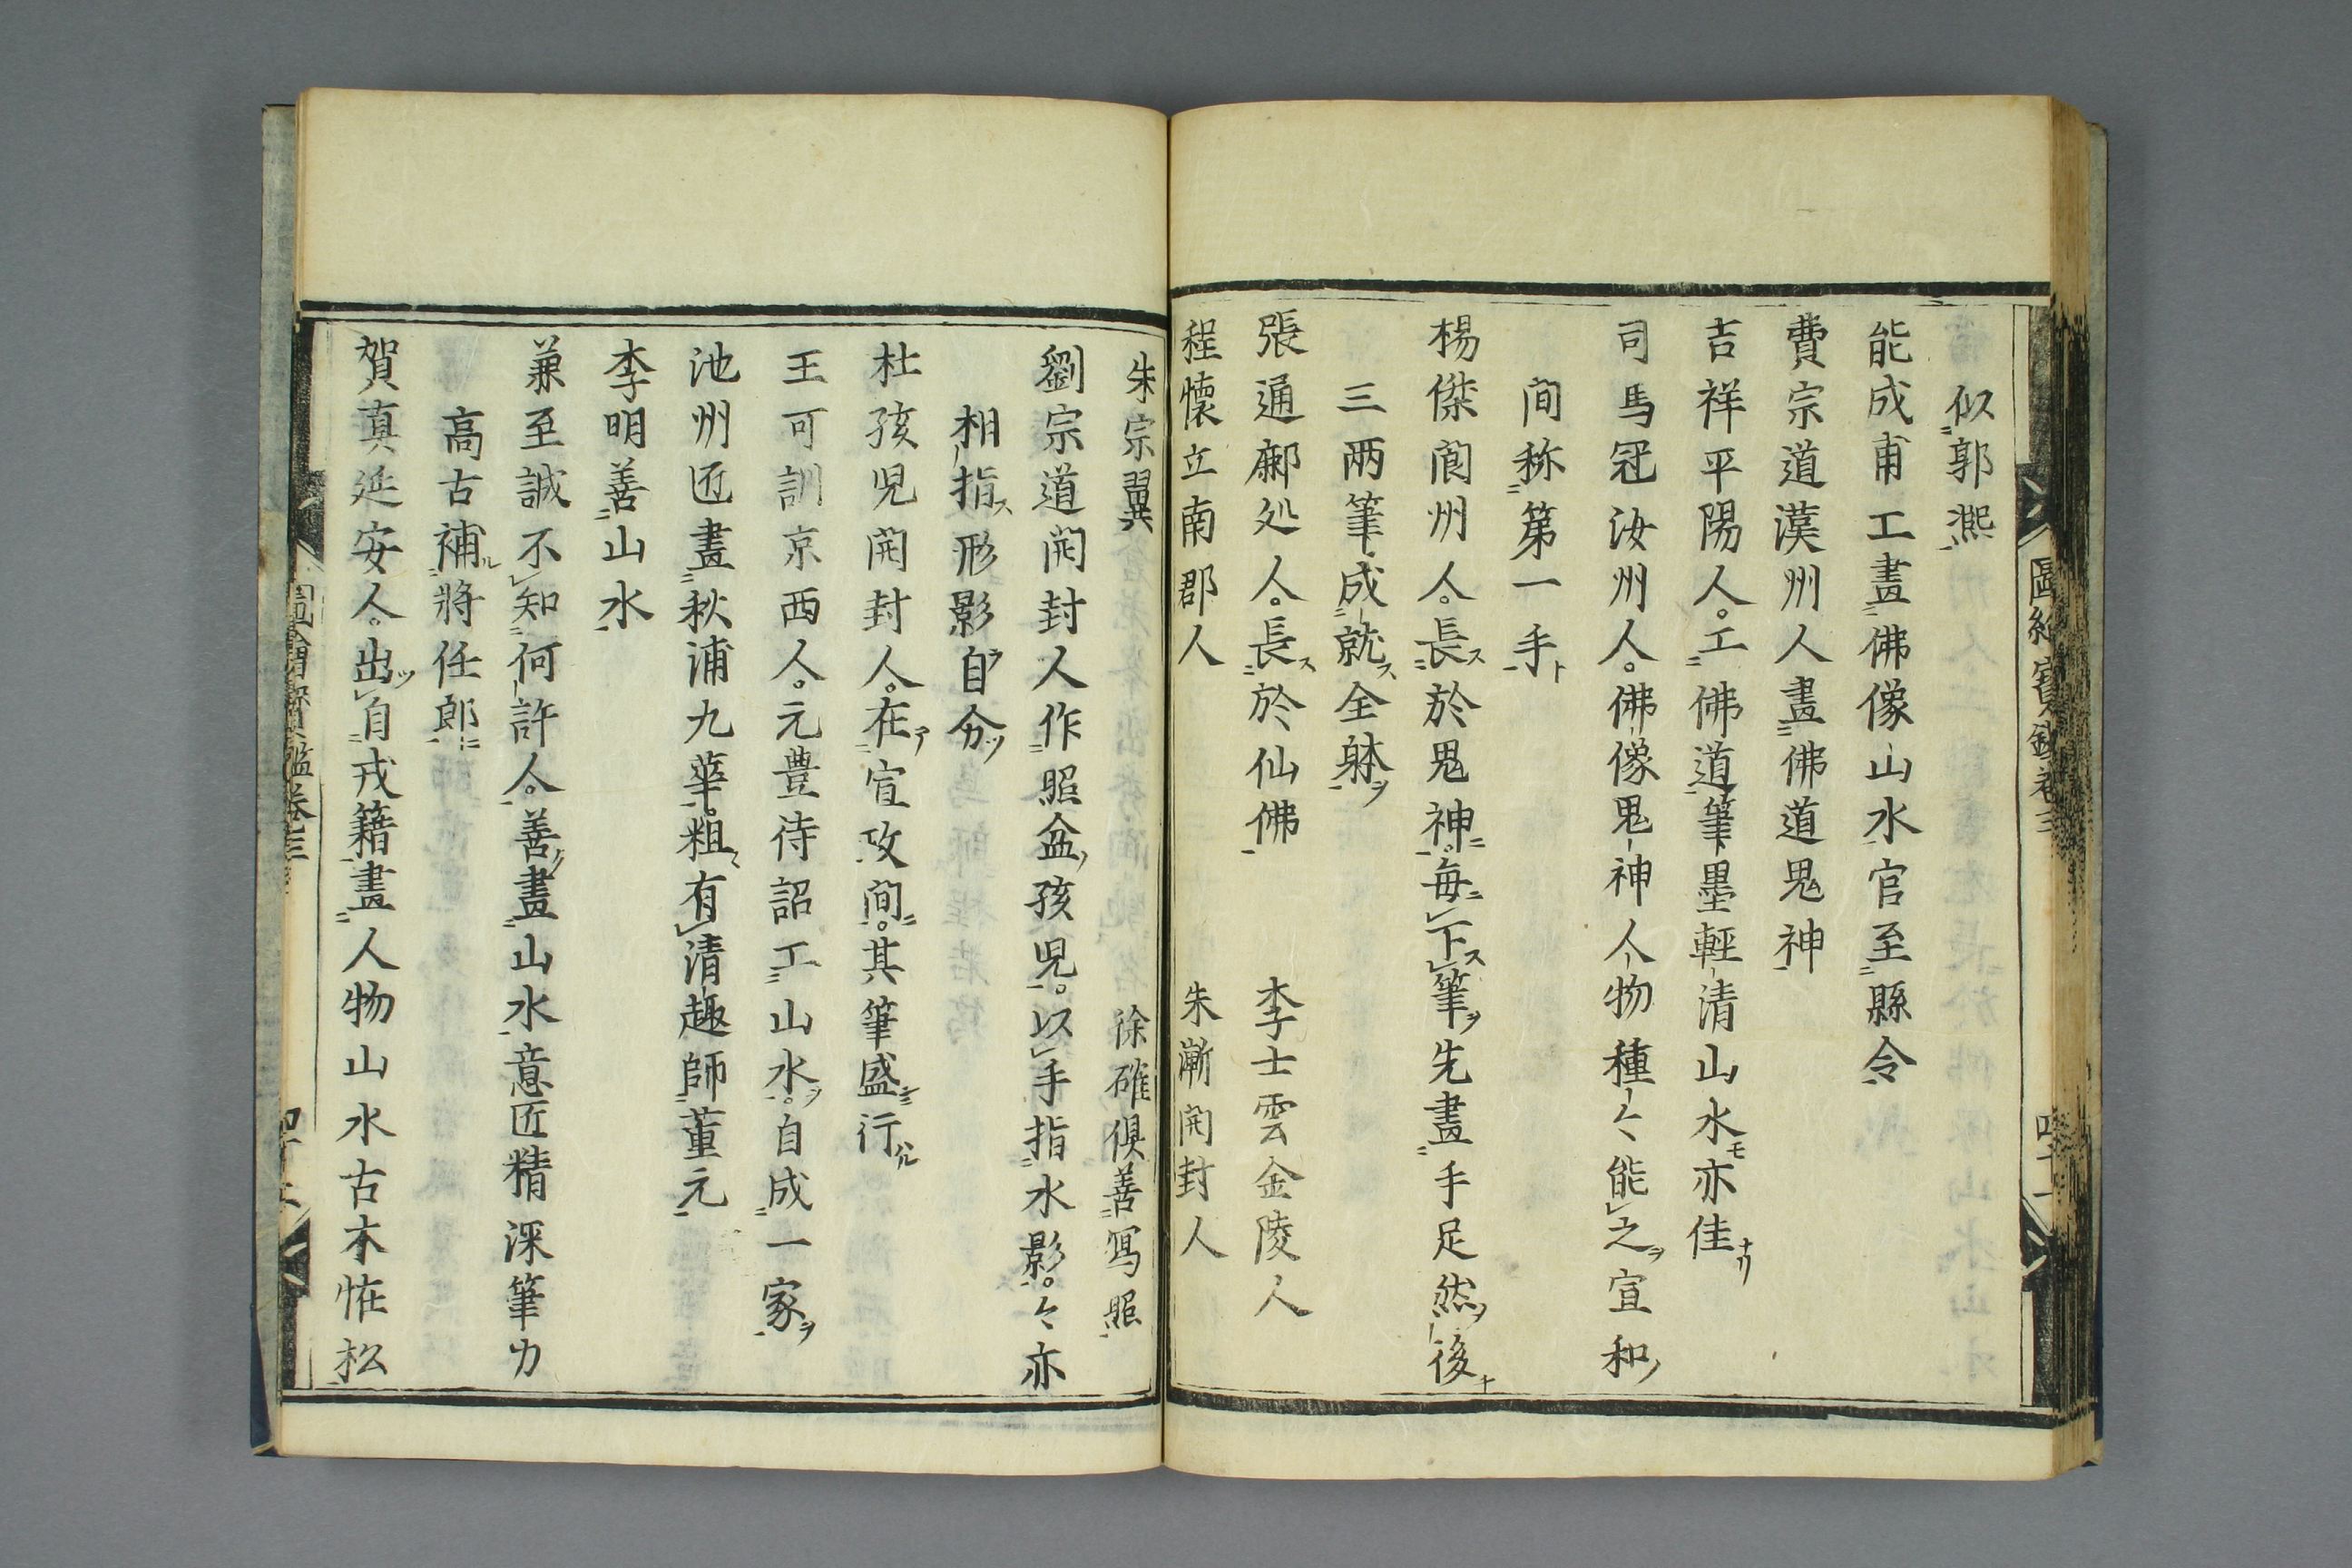 似郭熙
能成甫工畫佛像山水官至縣令
費宗道漢州人畫佛道鬼神
吉祥平陽人。工佛道筆墨輕清山水モ亦佳ナリ
司馬冠汝州人。佛像鬼神人物種々能之ヲ宣和ノ
間称第一手ト
楊傑閬州人。長ス於鬼神ニ。每下ス筆ヲ先畫手足然ヲ後ナ
三兩筆成就ス全躰ヲ
張通鄜処人。長ス於仙佛　李士雲金陵人
程懷立南郡人　朱漸開封人
朱宗翼　徐確俱善寫照
劉宗道開封人作照盆ノ孩兒。以手指水影。々亦
相指ス形影自ラ分ツ
杜孩兒開封人。在ア宣政間ニ。其筆盛ニ行ハル
王可訓京西人。元豊待詔工山水ヲ。自成一家ヲ
池州匠畫秋浦九華。粗有清趣師董元
李明善山水
兼至誠不知何許人。善ク畫山水意匠精深筆力
高古補ル將仕郎ニ
賀真延安人。出ツ自戎籍畫人物山水古木恠松
圖繪寶鑑卷三